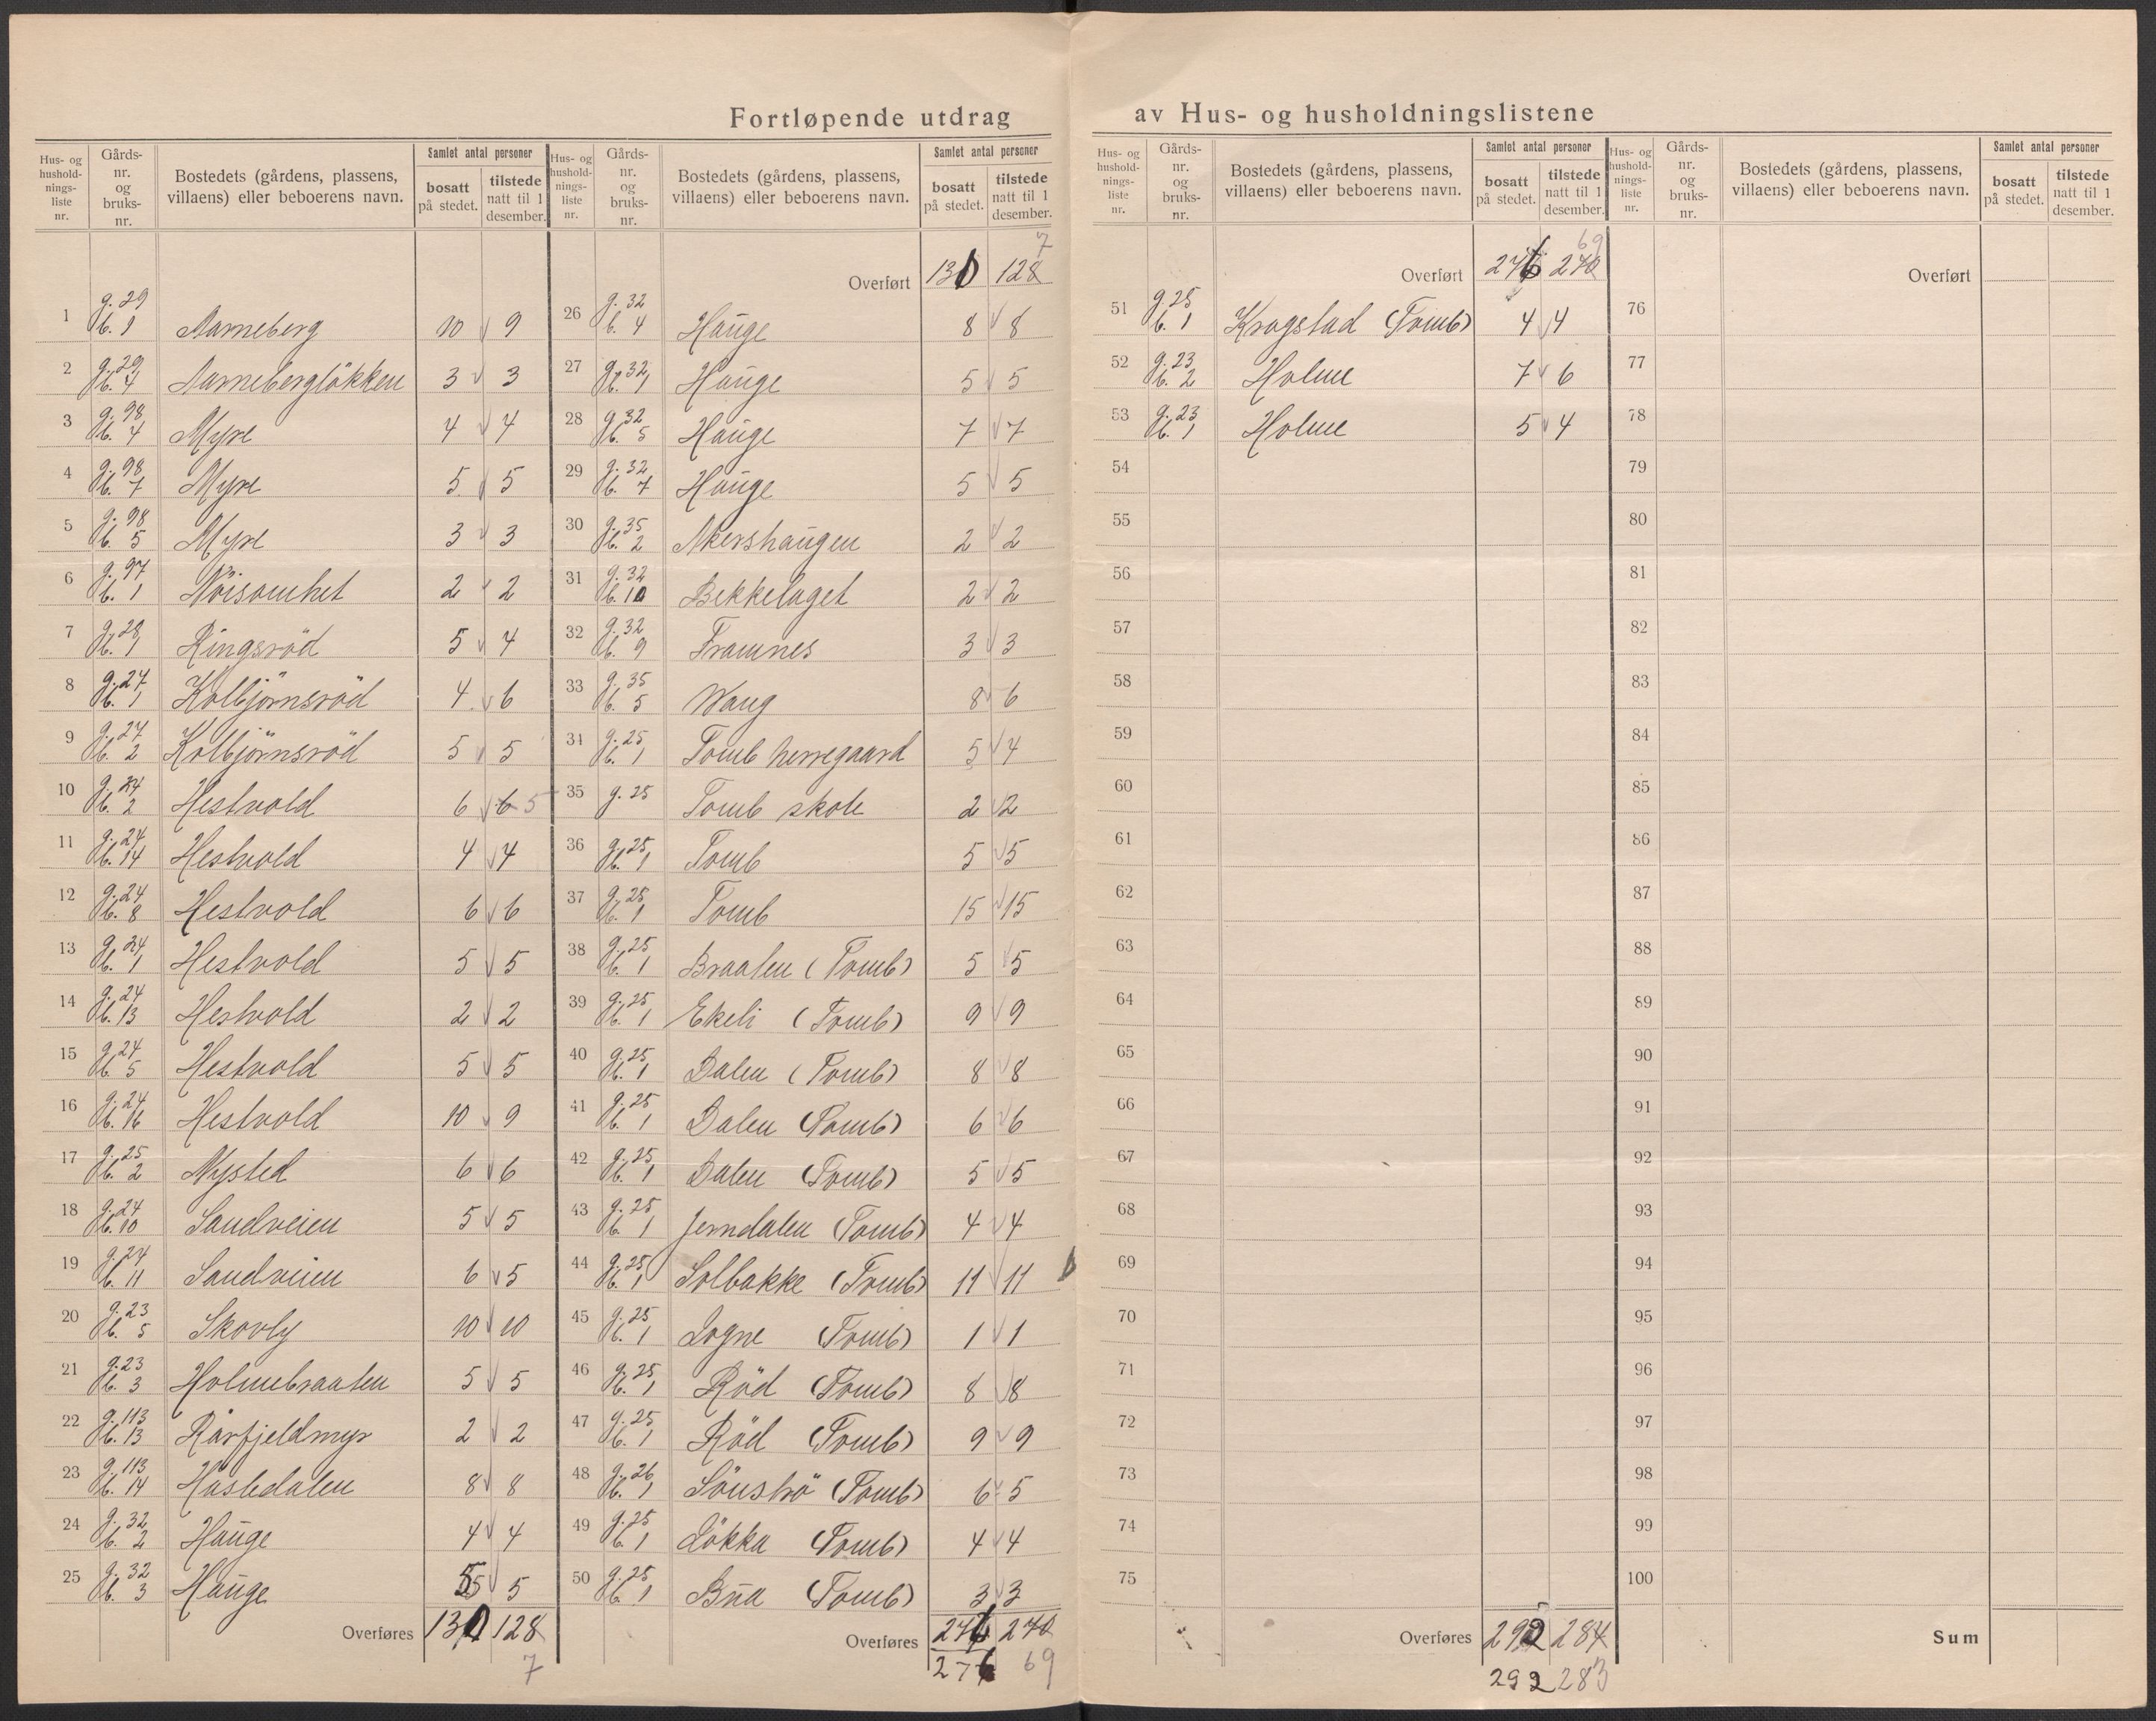 Fortløpende utdrag av Hus- og husholdningslistene
Hus- og husholdnings- liste nr. | Gårds- nr. og bruks- nr. | Bostedets (gårdens, plassens, villaens) eller beboerens navn. | Samlet antal personer | bosatt på stedet. | tilstede natt til 1 desember.
1 g. 29 b. 1 Aarneberg 10 9
2 g. 29 b. 4 Aarnebergløkken 3 3
3 g. 98 b. 4 Myre 4 4
4 g. 98 b. 7 Myre 5 5
5 g. 98 b. 5 Myre 3 3
6 g. 97 b. 1 Nöisomhet 2 2
7 g. 28 b. 1 Ringsröd 5 4
8 g. 27 b. 1 Kolbjörnsröd 4 6
9 g. 27 b. 2 Kolbjörnsröd 5 5
10 g. 24 b. 2 Hestvold 6 6 5
11 g. 24 b. 14 Hestvold 4 4
12 g. 24 b. 8 Hestvold 6 6
13 g. 24 b. 1 Hestvold 5 5
14 g. 24 b. 13 Hestvold 2 2
15 g. 24 b. 5 Hestvold 5 5
16 g. 24 b. 16 Hestvold 10 9
17 g. 25 b. 2 Nysted 6 6
18 g. 24 b. 10 Sandveien 5 5
19 g. 24 b. 11 Sandveien 6 5
20 g. 23 b. 5 Skovly 10 10
21 g. 23 b. 3 Holmebraaten 5 5
22 g. 113 b. 13 Rörfjeldmyr 2 2
23 g. 113 b. 14 Hasledalen 8 8
24 g. 32 b. 2 Hauge 4 4
25 g. 32 b. 3 Hauge 5 5
Overføres 130 128
7
Hus- og husholdnings- liste nr. | Gårds- nr. og bruks- nr. | Bostedets (gårdens, plassens, villaens) eller beboerens navn. | Samlet antal personer | bosatt på stedet. | tilstede natt til 1 desember.
7
Overført 130 128
26 g. 32 b. 4 Hauge 8 8
27 g. 32 b. 1 Hauge 5 5
28 g. 32 b. 5 Hauge 7 7
29 g. 32 b. 7 Hauge 5 5
30 g. 35 b. 2 Akershaugen 2 2
31 g. 32 b. 10 Bekkelaget 2 2
32 g. 32 b. 9 Framnes 3 3
33 g. 35 b. 5 Wang 8 6
34 g. 25 b. 1 Tomb herregaard 5 4
35 g. 25 Tomb skole 2 2
36 g. 25 b. 1 Tomb 5 5
37 g. 25 b. 1 Tomb 15 15
38 g. 25 b. 1 Braaten (Tomb) 5 5
39 g. 25 b. 1 Ekeli (Tomb) 9 9
40 g. 25 b. 1 Dalen (Tomb) 8 8
41 g. 25 b. 1 Dalen (Tomb) 6 6
42 g. 25 b. 1 Dalen (Tomb) 5 5
43 g. 25 b. 1 Jerndalen (Tomb) 4 4
44 g. 25 b. 1 Solbakke (Tomb) 11 11
45 g. 25 b. 1 Logne (Tomb) 1 1
46 g. 25 b. 1 Röd (Tomb) 8 8
47 g. 25 b. 1 Röd (Tomb) 9 9
48 g. 26 b. 1 Sönströ (Tomb) 6 5
49 g. 25 b. 1 Lökka (Tomb) 4 4
50 g. 25 b. 1 Bua (Tomb) 3 3
Overføres 276 270
276 69
Hus- og husholdnings- liste nr. | Gårds- nr. og bruks- nr. | Bostedets (gårdens, plassens, villaens) eller beboerens navn. | Samlet antal personer | bosatt på stedet. | tilstede natt til 1 desember.
69
Overført 276 270
51 g. 25 b. 1 Krogstad (Tomb) 4 4
52 g. 23 b. 2 Holme 7 6
53 g. 23 b. 1 Holme 5 4
54
55
56
57
58
59
60
61
62
63
64
65
66
67
68
69
70
71
72
73
74
75
Overføres 292 284
292 283
Hus- og husholdnings- liste nr. | Gårds- nr. og bruks- nr. | Bostedets (gårdens, plassens, villaens) eller beboerens navn. | Samlet antal personer | bosatt på stedet. | tilstede natt til 1 desember.
Overført
76
77
78
79
80
81
82
83
84
85
86
87
88
89
90
91
92
93
94
95
96
97
98
99
100
Sum